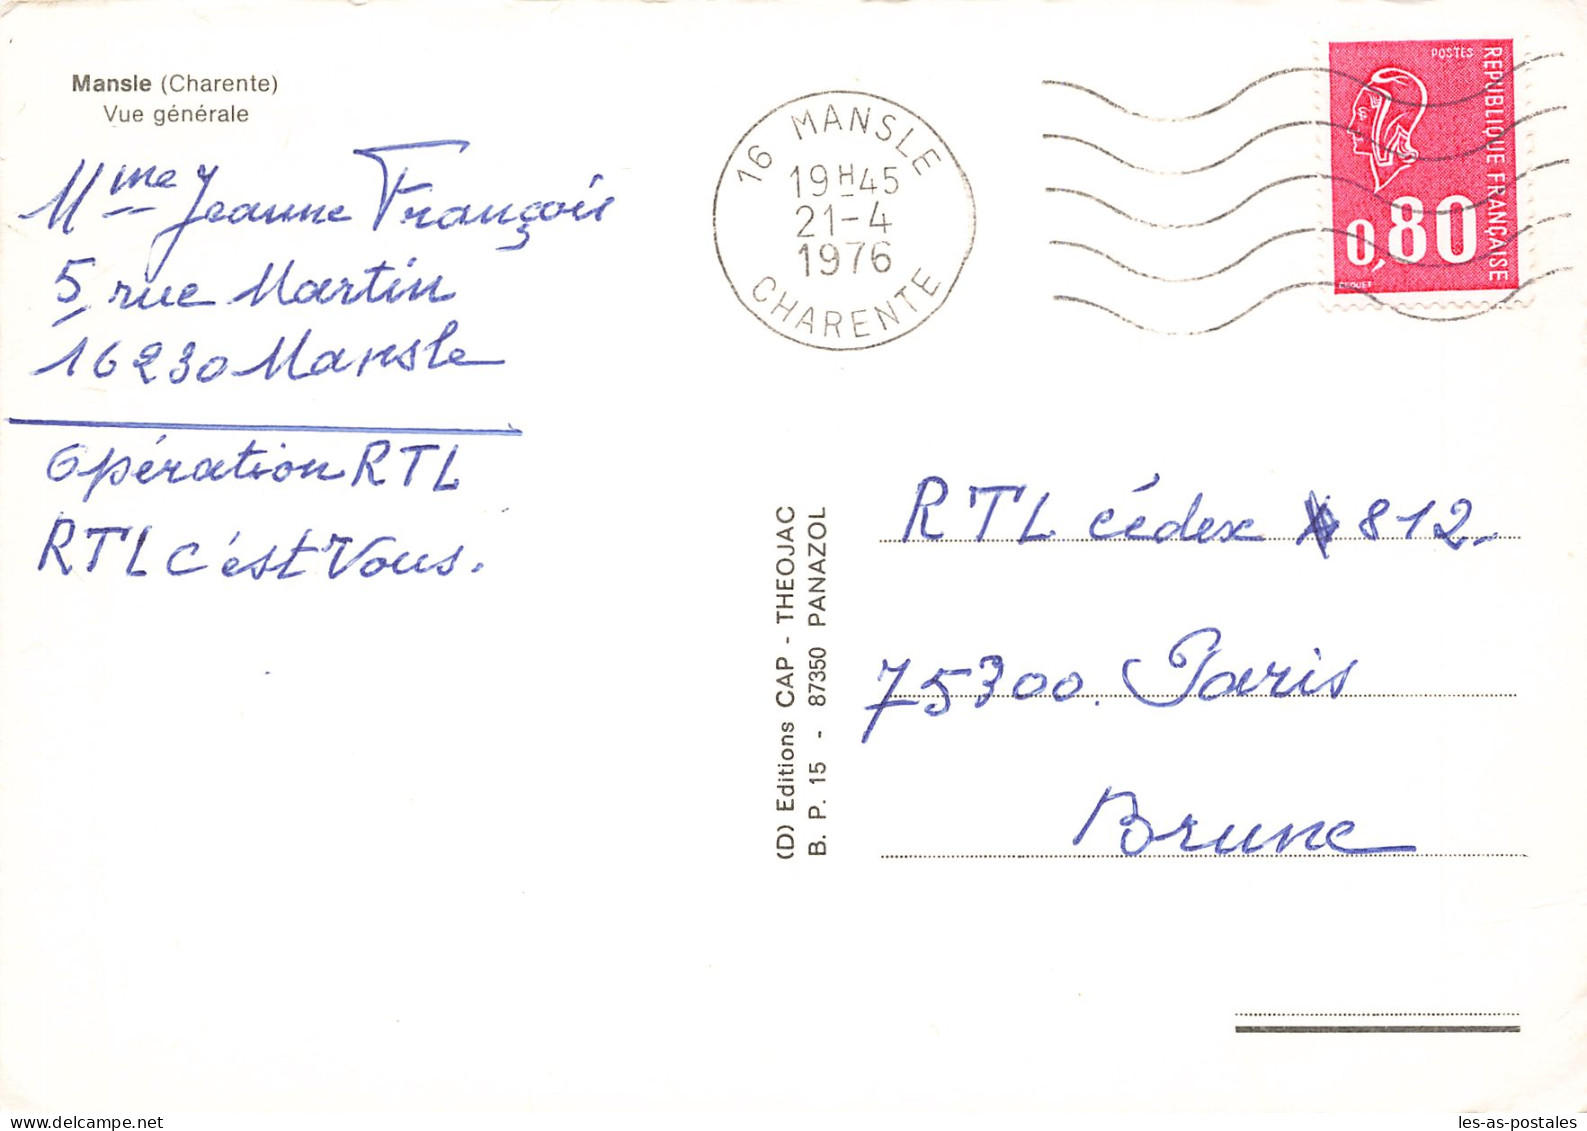 Mansle (Charente)
Vue générale
Mme Jeanne François
5, rue Martin
16230 Mansle
Opération RTL
RTL c'est Vous.
16 MANSLE
19H45
21-4
1976
CHARENTE
POSTES
REPUBLIQUE FRANÇAISE
0,80
BEQUET
(D) Editions CAP - THEOJAC
B. P. 15 - 87350 PANAZOL
RTL cédex 812.
75300. Paris
Brune
les-as-postales